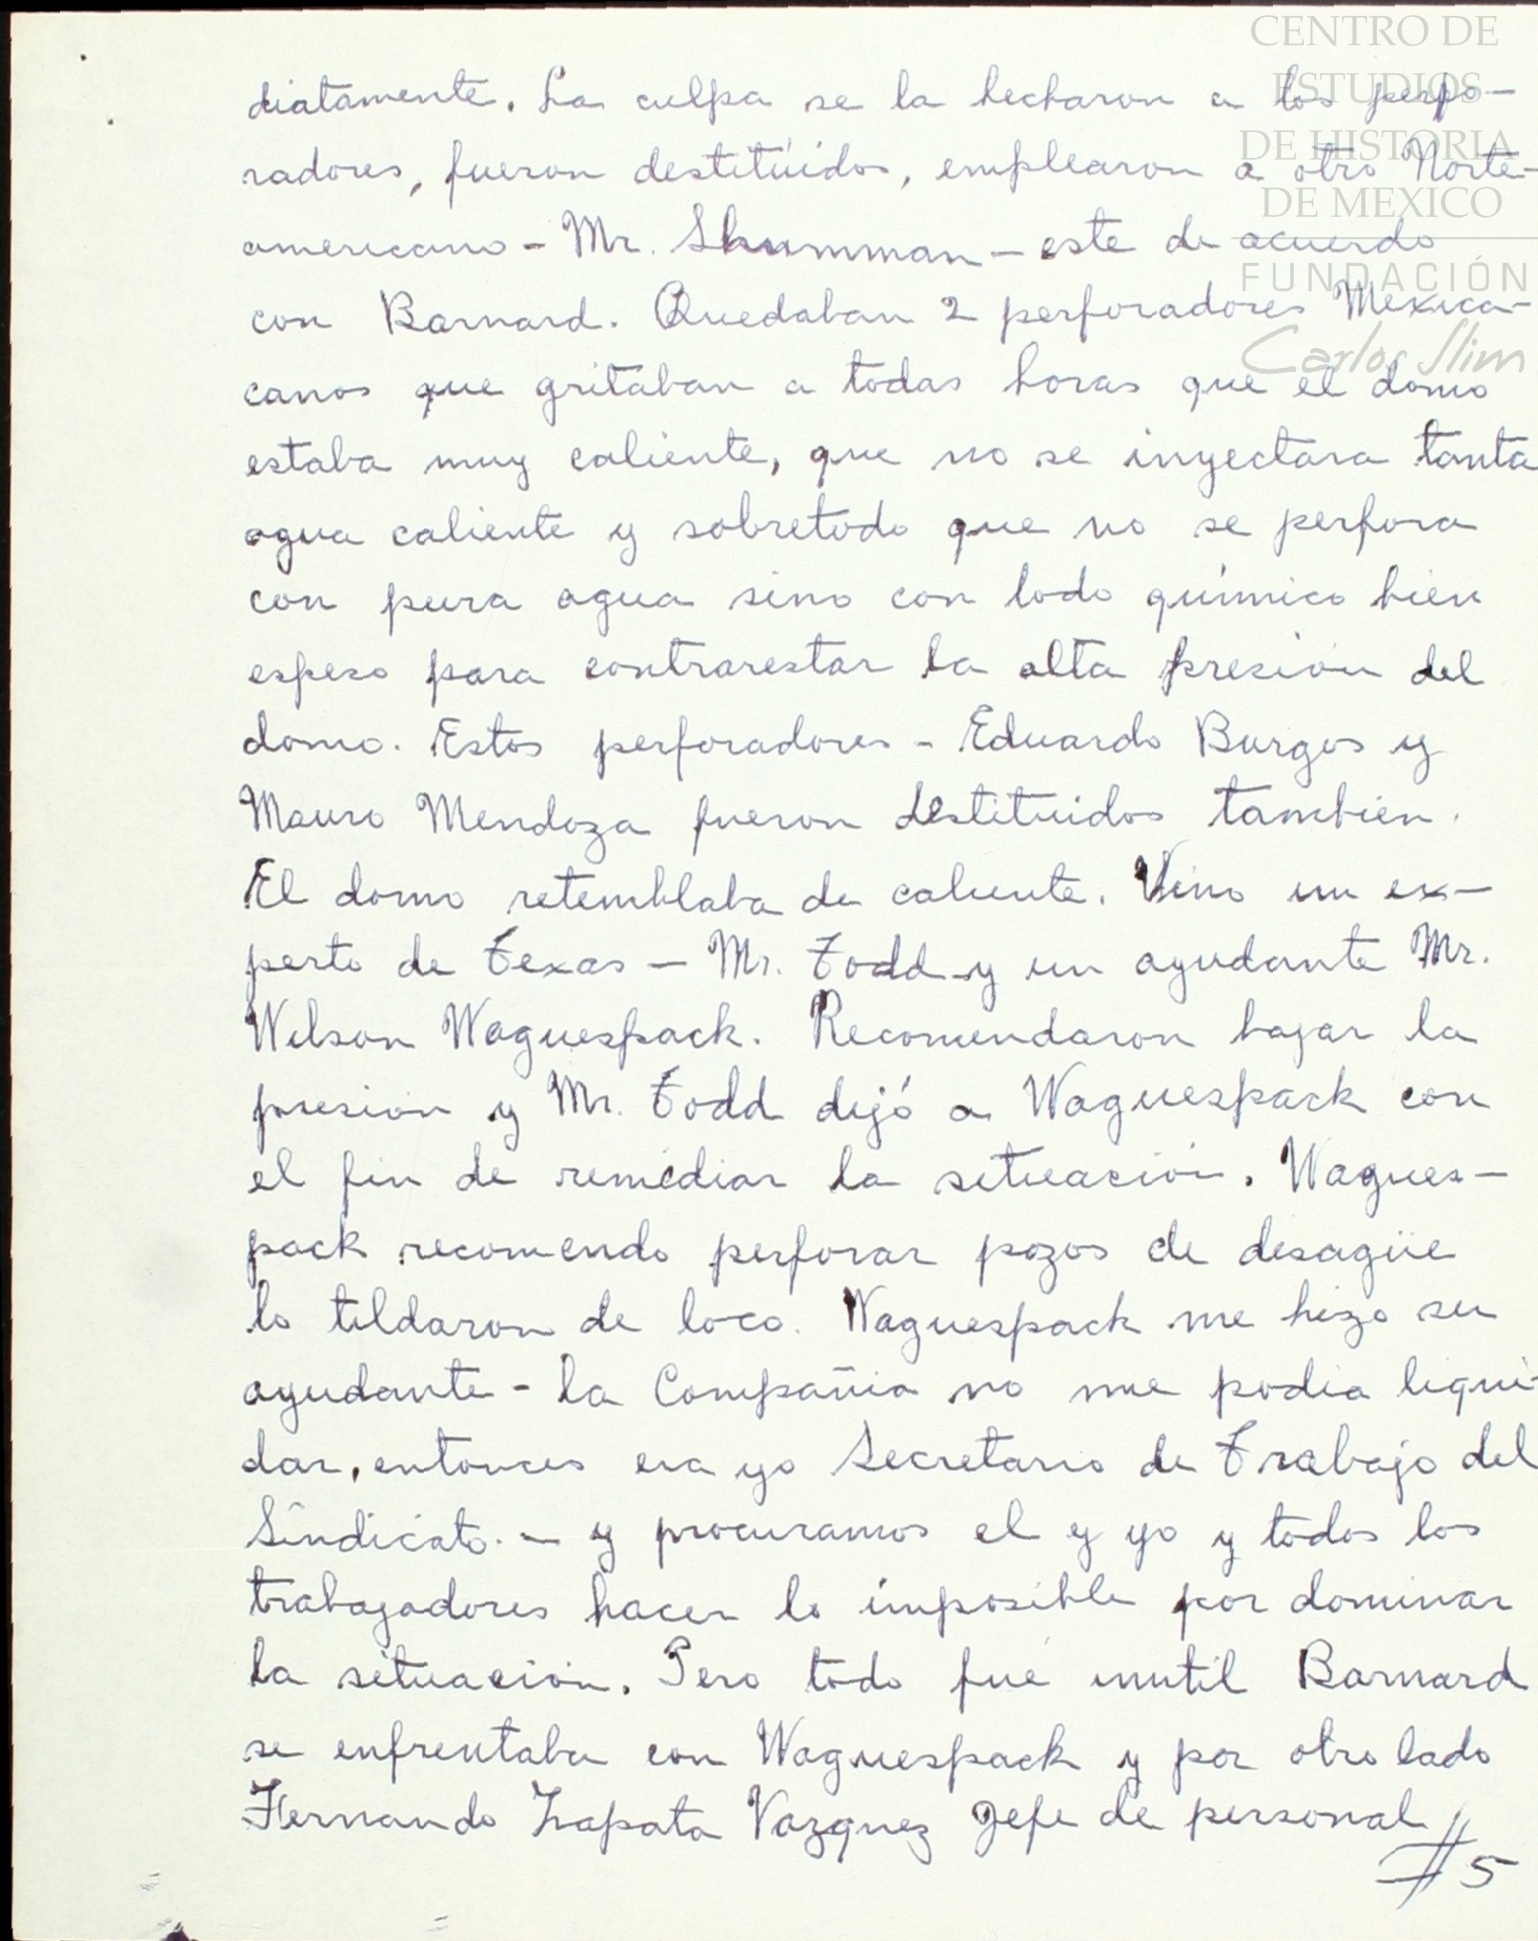 diatamente. La culpa se la hecharon a los perfo-
radores, fueron destitúidos, emplearon a otro Norte-
americano - Mr. Shumman - este de acuerdo
con Barnard. Quedaban 2 perforadores Mexica-
canos que gritaban a todas horas que el domo
estaba muy caliente, que no se inyectara tanta
agua caliente y sobretodo que no se perfora
con pura agua sino con lodo químico bien
espeso para contrarestar la alta presión del
domo. Estos perforadores - Eduardo Burgos y
Mauro Mendoza fueron destituidos tambien.
El domo retemblaba de caliente. Vino un ex-
perto de Texas - Mr. Todd y un ayudante Mr.
Wilson Waguespack. Recomendaron bajar la
presion y Mr. Todd dejó a Waguespack con
el fin de remediar la situación. Wagues-
pack recomendo perforar pozos de desagüe
lo tildaron de loco. Waguespack me hizo su
ayudante - la Compañia no me podia liqui-
dar, entonces era yo Secretario de Trabajo del
Sindicato. - y procuramos el y yo y todos los
trabajadores hacer lo imposible por dominar
la situación. Pero todo fué inutil Barnard
se enfrentaba con Waguespack y por otro lado
Hernando Zapata Vazquez Jefe de personal
#5
CENTRO DE
ESTUDIOS
DE HISTORIA
DE MEXICO
FUNDACIÓN
Carlos Slim